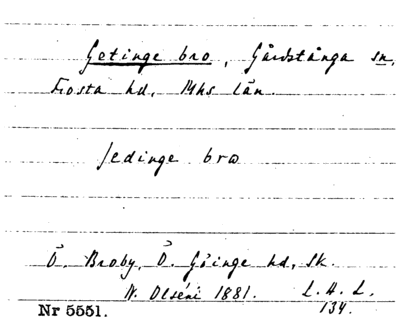 Getinge bro, Gårdstånga sn,
Frosta hd, Mhs län.
Jedinge bro
Ö. Broby, Ö. Göinge hd, Sk.
W. Olséni 1881. L.A.L.
134.
Nr 5551.